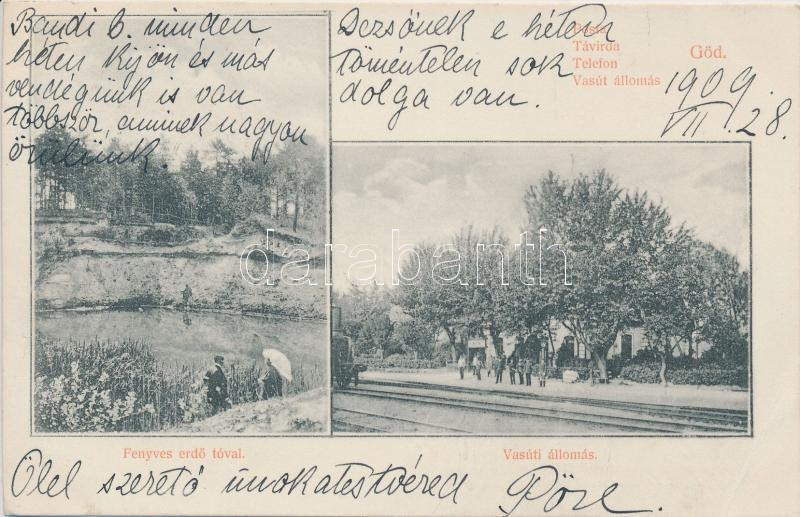 Bandi b. minden
héten kijön és más
vendégünk is van
többször, aminek nagyon
örülünk.
Dezsőnek e héten
töméntelen sok
dolga van.
Posta
Távirda
Telefon
Vasút állomás
Göd.
1909.
VII. 28.
darabanth.com
Fenyves erdő tóval.
Vasúti állomás.
Ölel szerető unokatestvéred